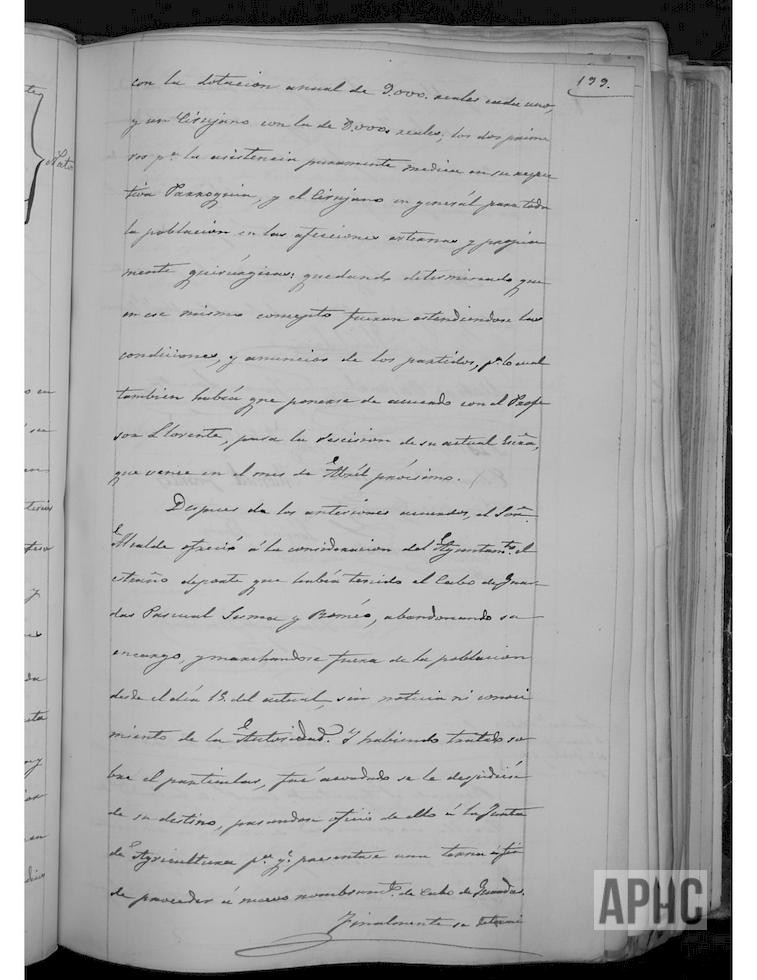 199.
con la dotacion anual de 9.000. reales cada uno,
y un Cirujano con la de 8.000. reales; los dos prime
ros pª. la asistencia puramente medica en su respec
tiva Parroquia, y el Cirujano en general para toda
la poblacion en las afecciones esternas y propia
mente quirúrgicas; quedando determinado que
en ese mismo concepto fueran estendiendose las
condiciones, y anuncios de los partidos, pª. lo cual
tambien habia que ponerse de acuerdo con el Profe
sor Llorente, para la rescision de su actual Escrª,
que vence en el mes de Abril prócsimo.
Despues de los anteriores acuerdos, el Señor
Alcalde ofreció á la consideracion del Ayuntamtº. el
estraño deporte que habia tenido el Cabo de Guar
das Pascual Sesma y Roméo, abandonando su
encargo, y marchandose fuera de la poblacion
desde el día 19. del actual, sin noticia ni conoci
miento de la Autoridad. Y habiendo tratado so
bre el particular, fué acordado se le despidiese
de su destino, pasandose oficio de ello á la Junta
de Agricultura pª. qº. presentase una terna á fin
de proceder á nuevo nombramtº. de Cabo de Guardas.
Finalmente se determi
Nato
APHC